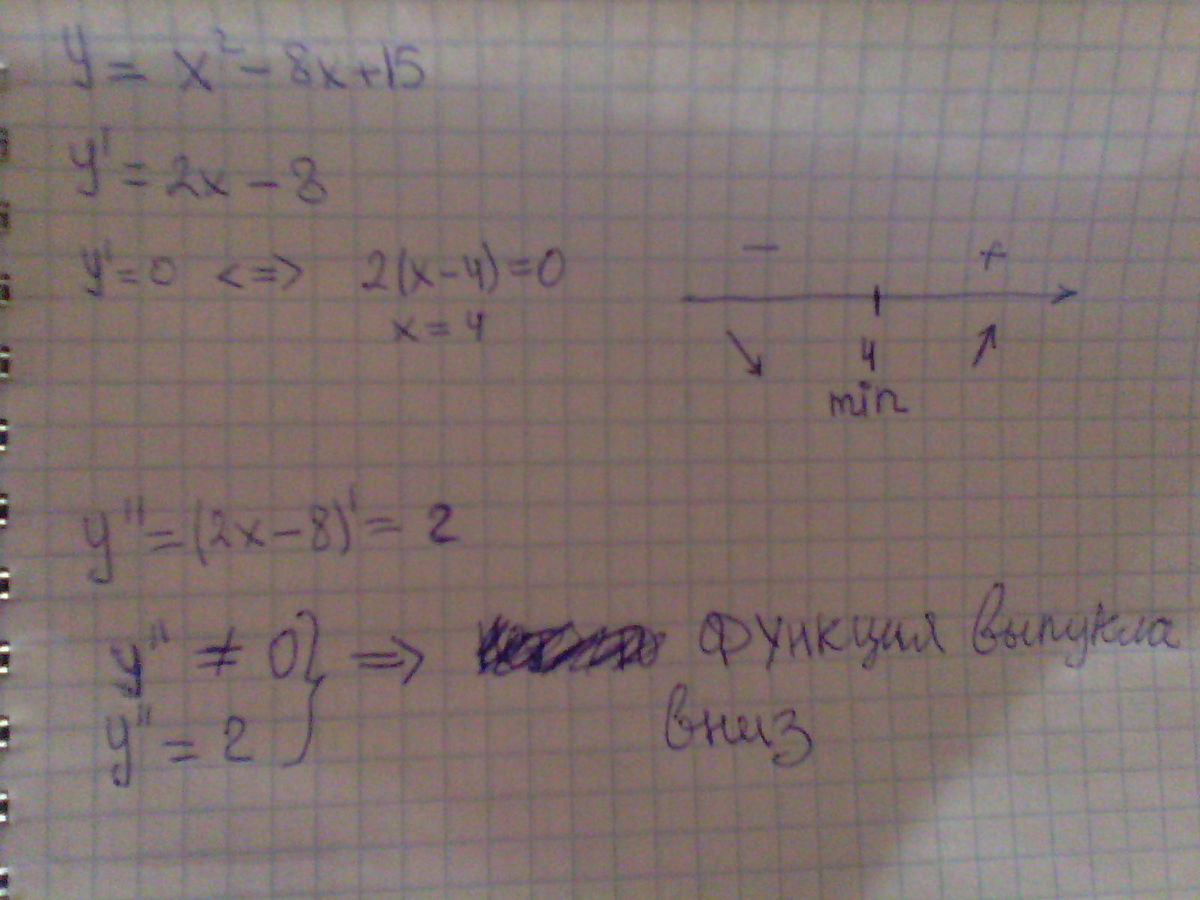 y = x² - 8x + 15
y' = 2x - 8
y' = 0 <=> 2(x - 4) = 0
x = 4
- +
4
min
y'' = (2x - 8)' = 2
y'' ≠ 0 } => функция выпукла
y'' = 2
вниз